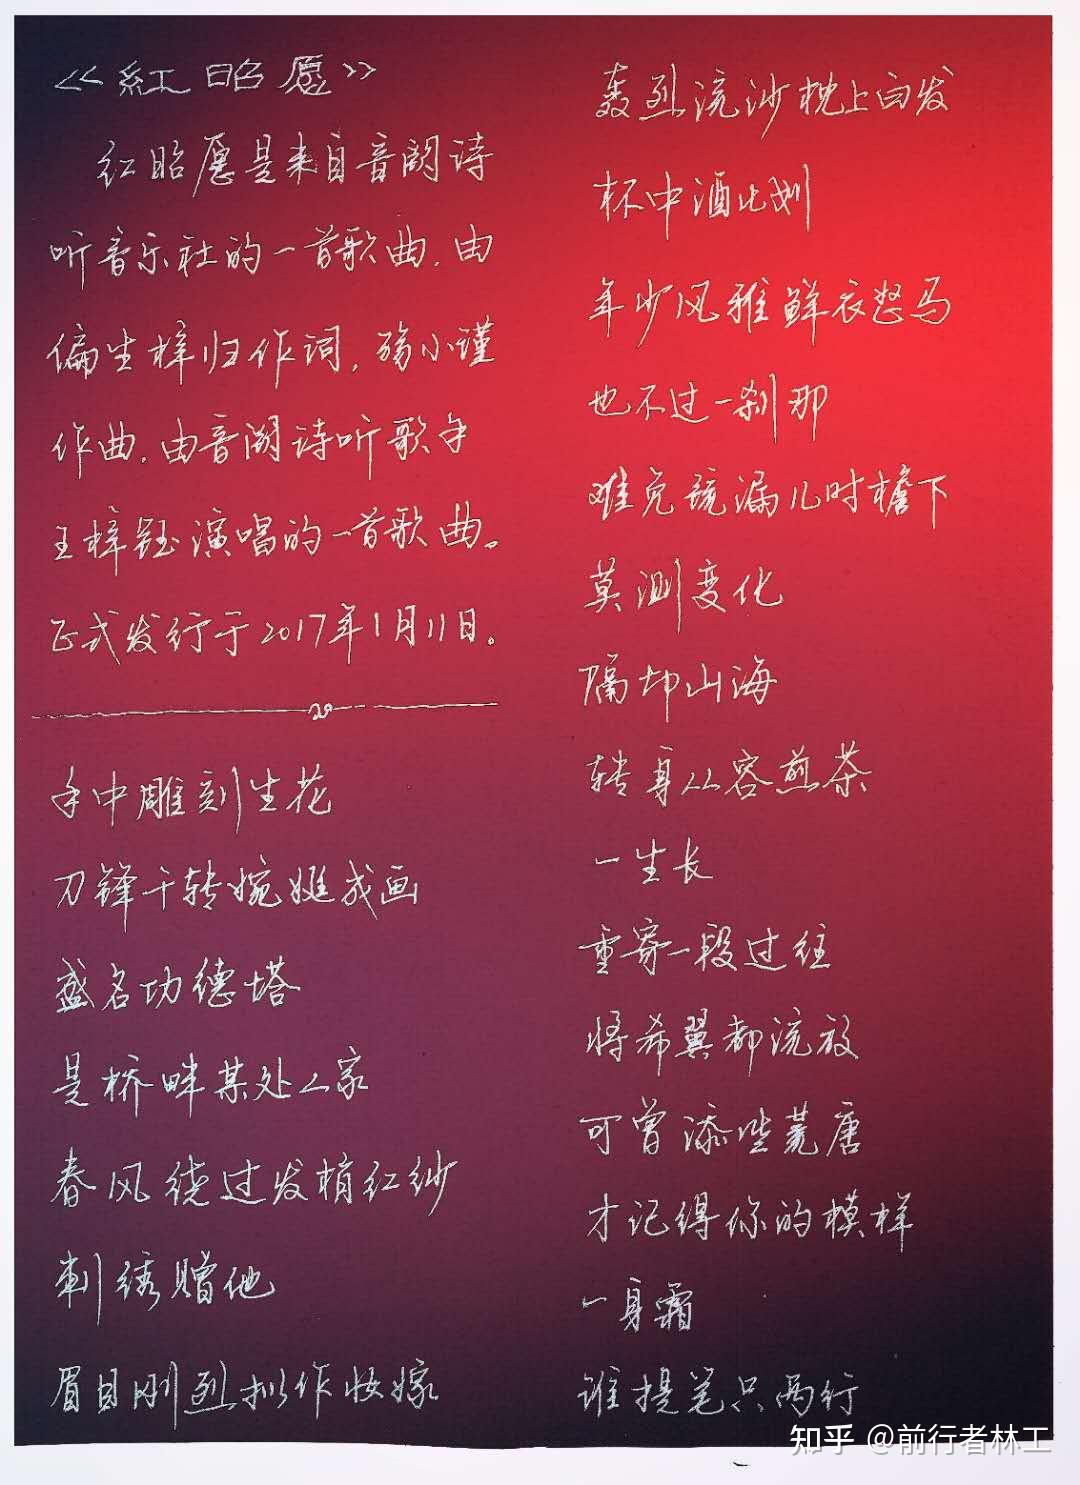 《紅昭愿》
红昭愿是来自音阙诗
听音乐社的一首歌曲.由
偏生梓归作词,殇小瑾
作曲.由音阙诗听歌手
王梓钰演唱的一首歌曲。
正式发行于2017年1月11日。
手中雕刻生花
刀锋千转婉娫成画
盛名功德塔
是桥畔某处人家
春风绕过发梢红纱
刺绣赠他
眉目刚烈拟作妆嫁
轰烈流沙枕上白发
杯中酒比划
年少风雅鲜衣怒马
也不过一刹那
难免疏漏儿时檐下
莫测变化
隔却山海
转身从容煎茶
一生长
重寄一段过往
将希翼都流放
可曾添些荒唐
才记得你的模样
一身霜
谁提笔只两行
知乎 @前行者林工